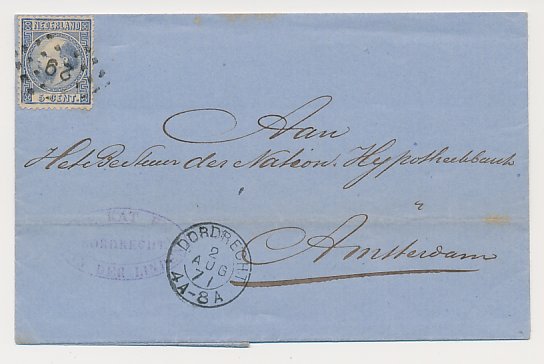 NEDERLAND
29
5 CENT.
Aan
Het Bestuur der Nation. Hypotheekbank
Amsterdam
KAT
DORDRECHT
DER
DORDRECHT
2
AUG
71
4A-8A